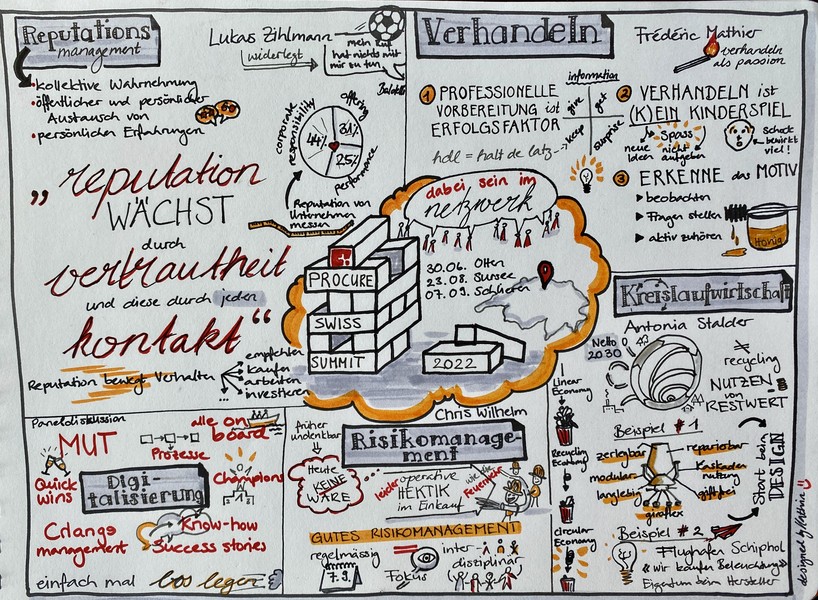 Reputations
management
Lukas Zihlmann
widerlegt
mein Ruf
hat nichts mit
mir zu tun
Balotelli
kollektive Wahrnehmung
öffentlicher und persönlicher
Austausch von
persönlichen Erfahrungen
corporate
responsibility
offering
performance
44%
31%
25%
Reputation von
Unternehmen
messen
„reputation
WÄCHST
durch
vertrautheit
und diese durch jeden
kontakt“
Reputation bewegt Verhalten
empfehlen
kaufen
arbeiten
investieren
Verhandeln
Frédéric Mathier
verhandeln
als passion
① PROFESSIONELLE
VORBEREITUNG ist
ERFOLGSFAKTOR
hdl = halt de latz
information
give
get
keep
surprise
② VERHANDELN ist
(K)EIN KINDERSPIEL
Spass
neue
Ideen
nicht
aufgeben
Schock
bewirkt
viel!
③ ERKENNE das MOTIV
beobachten
Fragen stellen
aktiv zuhören
Honig
dabei sein im
netzwerk
30.06. Olten
23.08. Sursee
07.09. Schlieren
PROCURE
SWISS
SUMMIT
2022
Kreislaufwirtschaft
Antonia Stalder
Netto 0
2030
recycling
NUTZEN
von
RESTWERT
Linear
Economy
Recycling
Economy
circular
Economy
Beispiel #1
zerlegbar
modular
langlebig
reparierbar
Kaskaden
nutzung
giftfrei
giroflex
Start beim
DESIGN
Beispiel #2
Flughafen Schiphol
«wir kaufen Beleuchtung»
Eigentum beim Hersteller
Paneldiskussion
MUT
Prozesse
alle on
board
Quick
wins
Digi-
talisierung
Champions
Know-how
Success stories
management
einfach mal los legen
Chris Wilhelm
Risikomanage-
ment
früher
undenkbar
Heute
KEINE
WARE
leider operative
HEKTIK
im Einkauf
wie die
Feuerwehr
GUTES RISIKOMANAGEMENT
regelmässig
7.9.
Fokus
inter-
disziplinär
designed by Kathrin